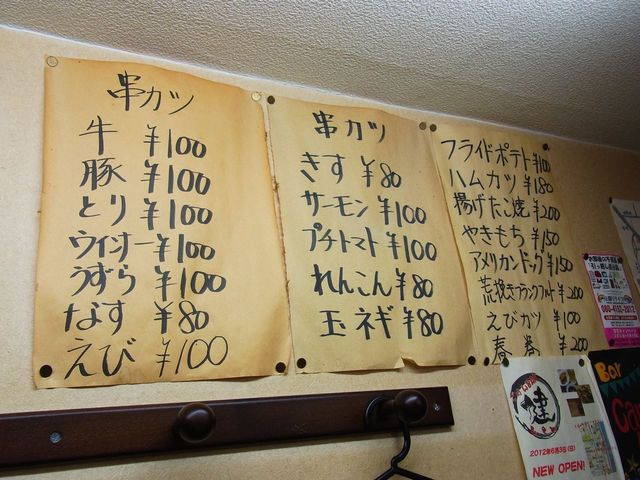 串カツ
牛 ¥100
豚 ¥100
とり ¥100
ウインナー ¥100
うずら ¥100
なす ¥80
えび ¥100
串カツ
きす ¥80
サーモン ¥100
プチトマト ¥100
れんこん ¥80
玉ネギ ¥80
フライドポテト ¥100
ハムカツ ¥180
揚げたこ焼 ¥200
やきもち ¥150
アメリカンドッグ ¥150
荒挽きフランクフルト ¥200
えびカツ ¥100
春巻 ¥200
2012年6月3日(日)
NEW OPEN!
BAR